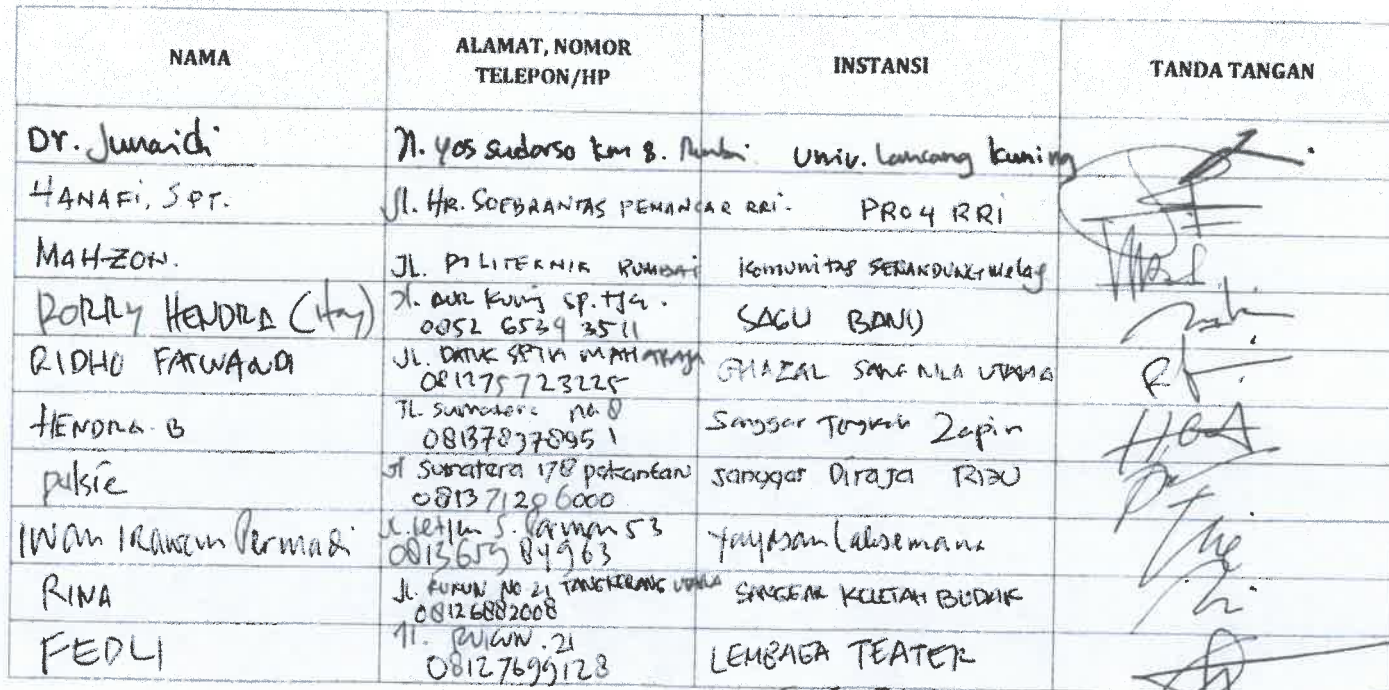 NAMA
ALAMAT, NOMOR
TELEPON/HP
INSTANSI
TANDA TANGAN
Dr. Junaidi
Jl. Yos sudarso km 8. Rumbai
Univ. Lancang Kuning
HANAFI, SPT.
Jl. HR. SOEBRANTAS PEMANCAR RRI.
PRO4 RRI
MAHZON.
JL. POLITEKNIK RUMBAI
Komunitas SENANDUNG Melayu
RORRY HENDRA
Jl. AUR Kuning sp. tga.
0852 6539 3511
SAGU BAND
RIDHO FATWANDI
JL. DATUK SETIA MAHARAJA
081275723225
GHAZAL SANG NILA UTAMA
HENDRA B
JL. Sumatera no 8
081378378951
Sanggar Tengkah Zapin
Jl Sumatera 178 pekanbaru
081371286000
sanggar Diraja RIAU
IWan IRawan Permadi
Jl. Letjen S. Parman 53
0813659 84963
Yayasan Laksemana
RINA
JL. RUKUN NO 21 TANGKERANG UTARA
08126882008
SANGGAR KELETAH BUDAK
FEDLI
Jl. RUKUN .21
08127699128
LEMBAGA TEATER